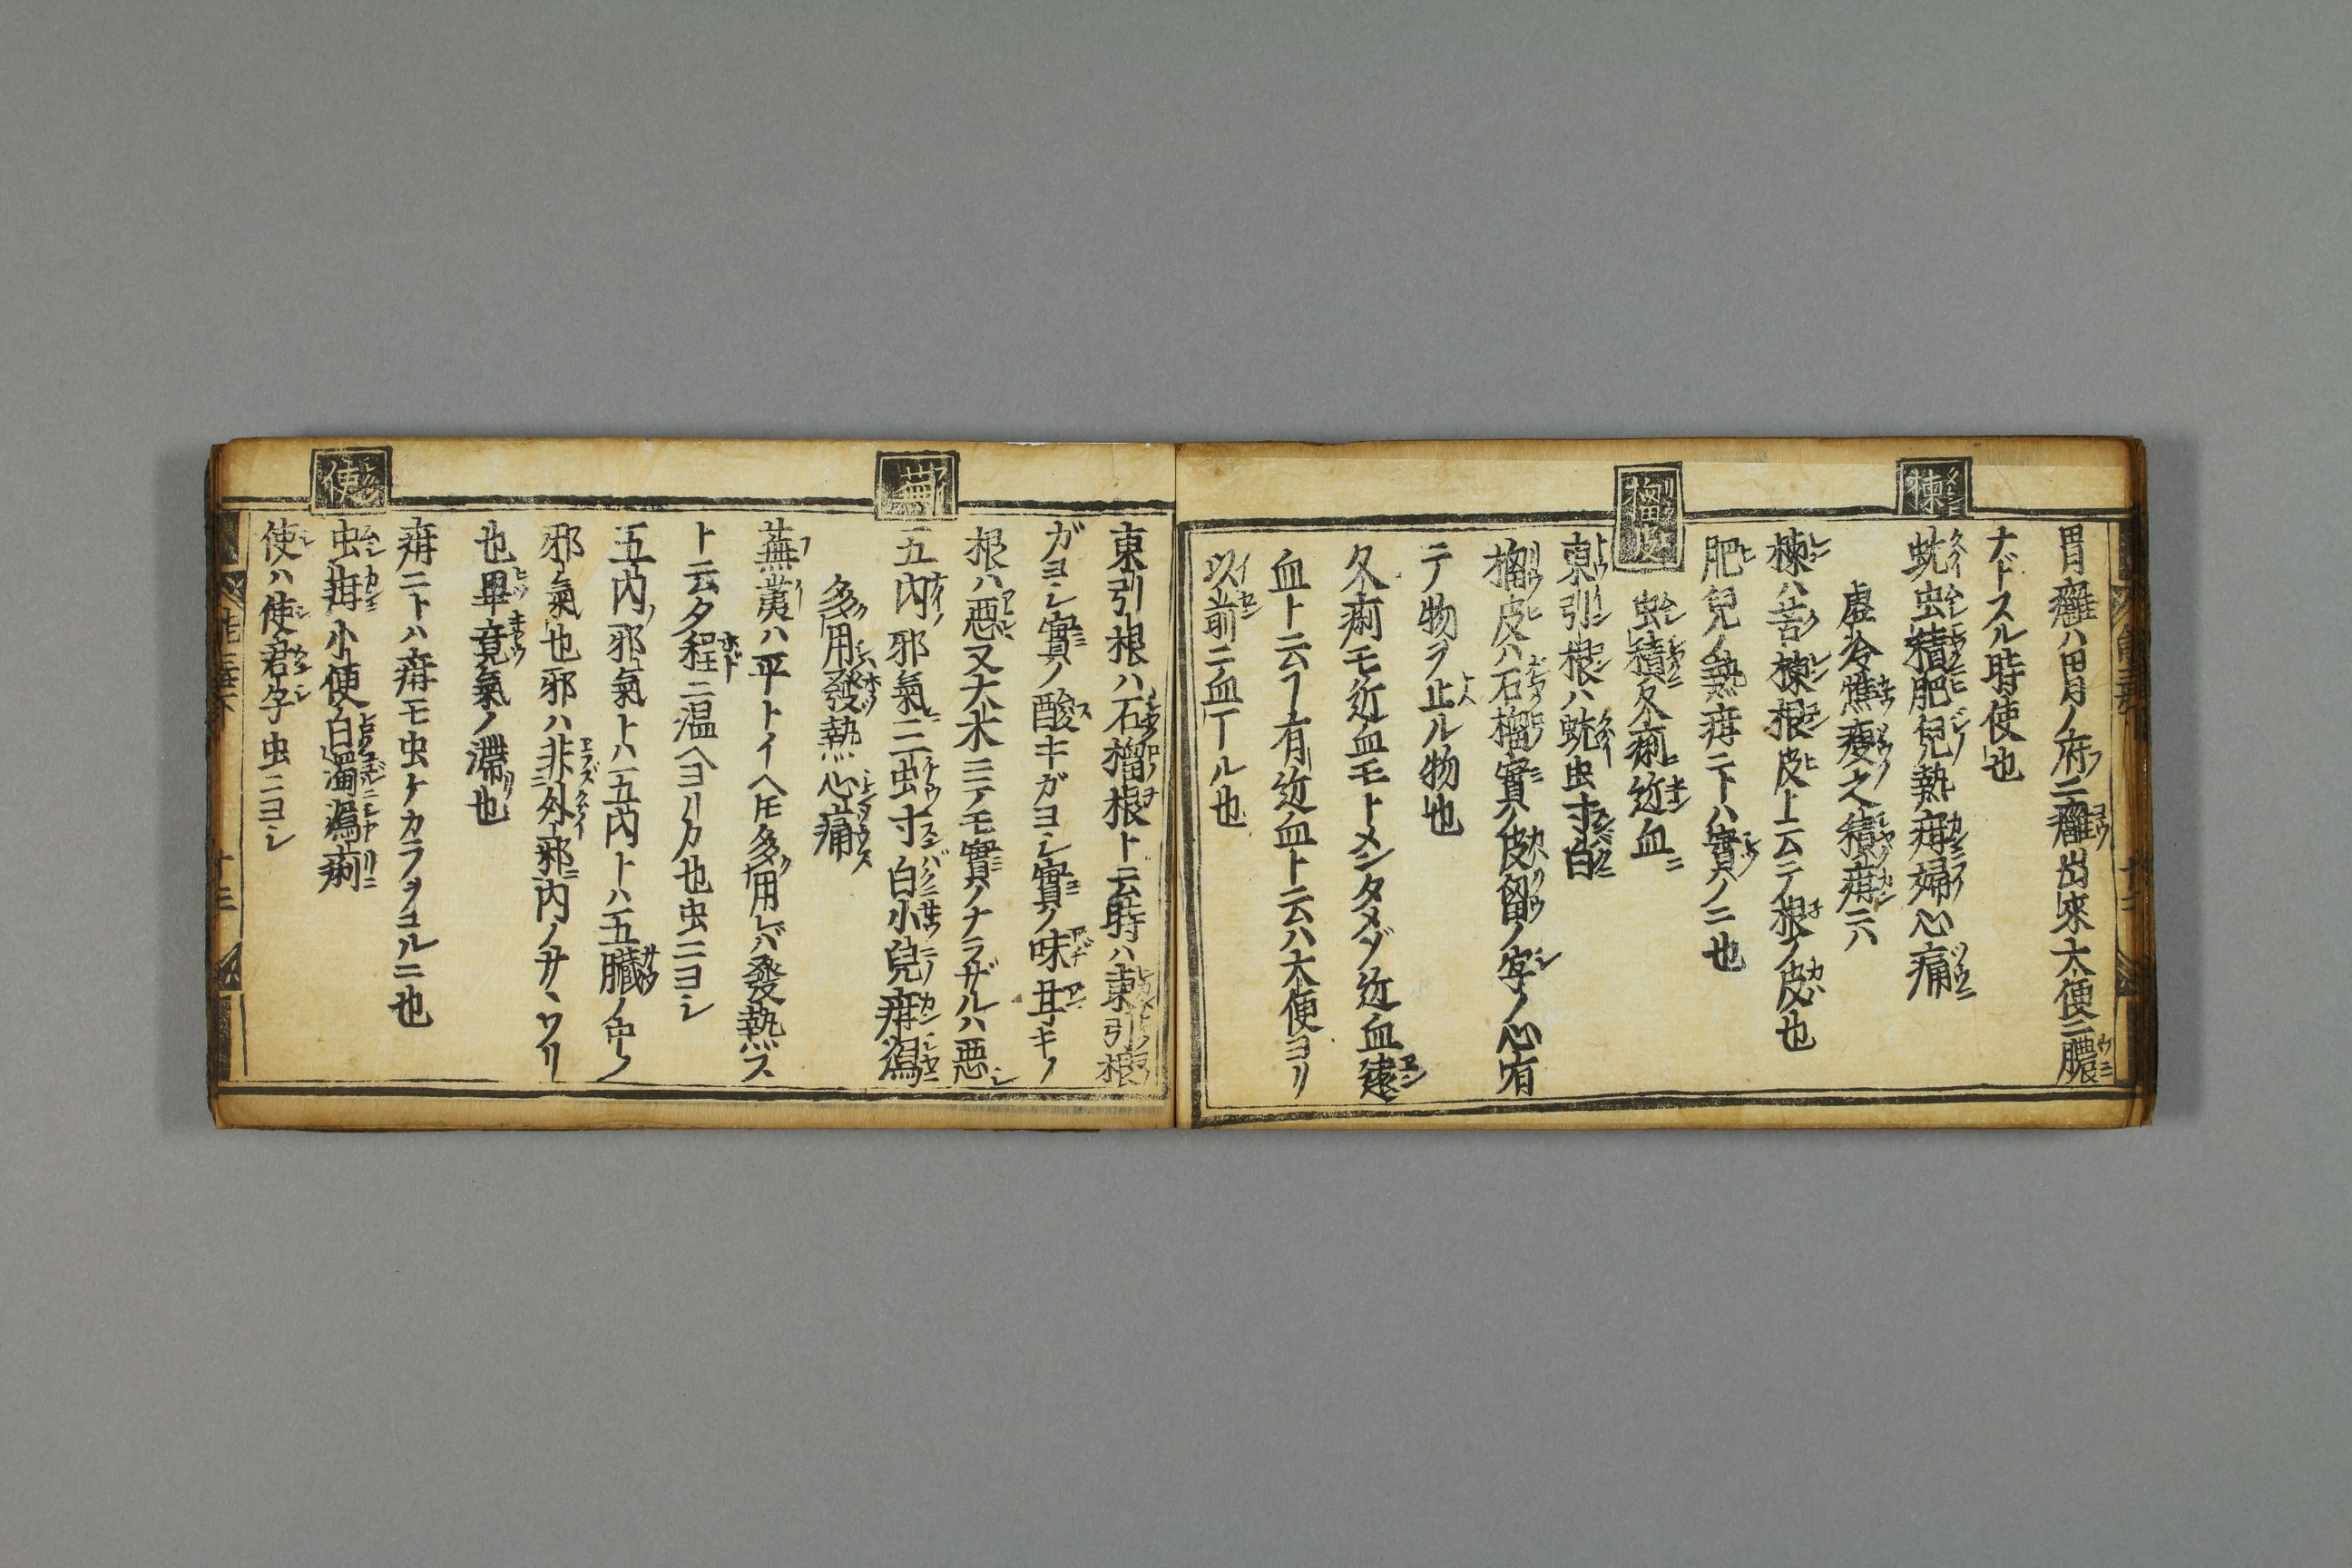 胃癰ハ胃ノ府ニ癰出來大便ニ膿
ナドスル時使也
楝
蚘虫積肥兒熱疳婦心痛
虚冷憔痩之積疳ニ八
楝ハ苦楝根皮ト云テ根ノ皮也
肥兒ノ熱疳ニトハ實ノニ也
榴皮
虫積久痢近血ニ
東引根ハ蚘虫寸白
榴皮ハ石榴實ノ皮留ノ字ノ心宥
テ物ヲ止ル物也
久痢モ近血モトメシタメゾ近血遠
血ト云ヿ有近血ト云ハ大便ヨリ
以前ニ血下ル也
東引根ハ石榴根ト云時ハ東引根
ガヨシ實ノ酸キガヨシ實ノ味甘キノ
根ハ悪又大木ニテモ實ノナラザルハ悪
蕪
五内邪氣ニ三虫寸白小兒疳瀉
多用發熱心痛
蕪荑ハ平トイヘ𪜈多用レバ發熱ス
ト云タ程ニ温ヘヨリタ也虫ニヨシ
五内邪氣トハ五内トハ五臓ノ中ノ
邪氣也邪ハ非外邪内ノサヽワリ
也畢竟氣ノ滯也
疳ニトハ疳モ虫ケカラヲコル二也
使
虫疳小便白濁瀉痢
使ハ使君子虫ニヨシ
十三